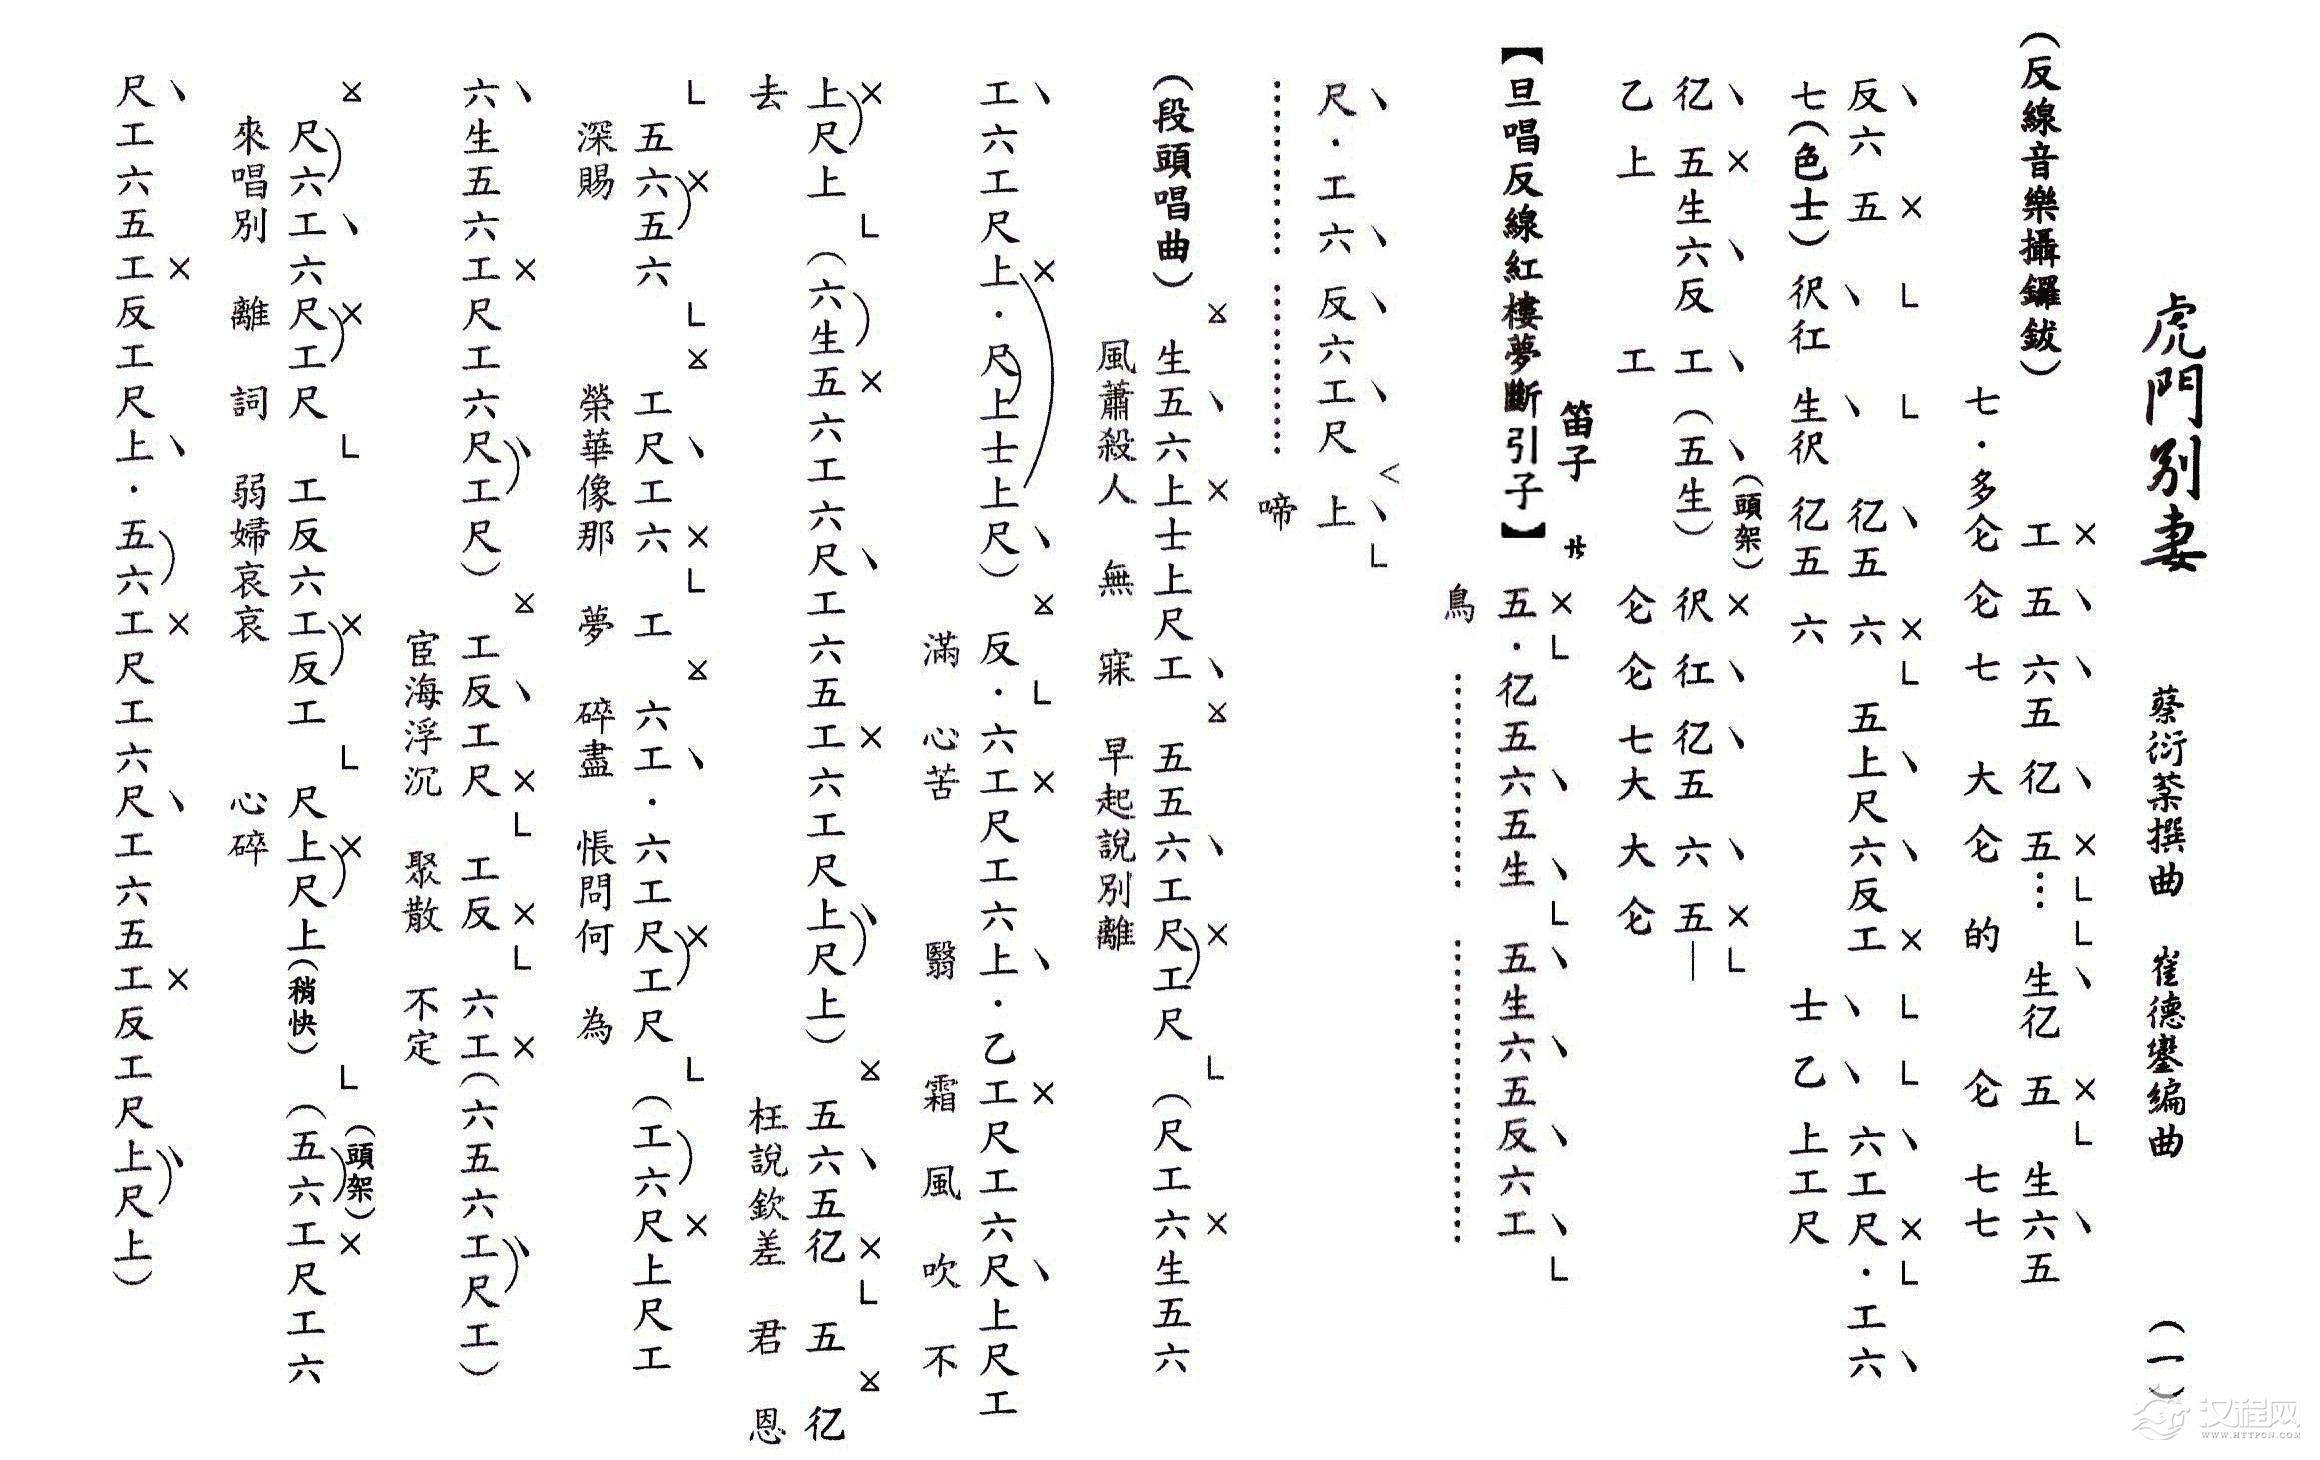 虎門別妻 蔡衍棻撰曲 崔德鑾編曲 (一)
(反線音樂攝鑼鈸) 工 五 六五 亿 五… 生亿 五 生六五
七·多仑 仑 七 大 仑 的 仑 七七
反六 五 亿五 六 五上尺六反工 六工尺·工六
七(色士)伬仜 生伬 亿五 六 士 乙 上工尺
(頭架)
亿 五生六反 工(五生) 伬 仜 亿五 六 五—
乙 上 工 仑 仑 七大大仑
笛子 サ
【旦唱反線紅樓夢斷引子】 五·亿五六五生 五生六五反六工
鳥
尺·工六 反六工尺 上
啼
(段頭唱曲) 生五六上士上尺工 五五六工尺工尺 (尺工六生五六
風蕭殺人 無 寐 早起說別離
工六工尺上·尺上士上尺) 反·六工尺工六上·乙工尺工六尺上尺工
滿 心苦 翳 霜 風 吹 不
上尺上 (六生五六工六尺工六五工六工尺上尺上) 五六五亿 五 亿
去 枉說欽差 君 恩
五六五六 工尺工六 工 六工·六工尺工尺 (工六尺上尺工
深賜 榮華像那 夢 碎盡 悵問何 為
六生五六工尺工六尺工尺) 工反工尺 工反 六工(六五六工尺工)
宦海浮沉 聚散 不定
尺六工六尺工尺 工反六工反工 尺上尺上(稍快) (五六工尺工六
(頭架)
來唱別 離 詞 弱婦哀哀 心碎
尺工六五工反工尺上·五六工尺工六尺工六五工反工尺上尺上)
汉程网
WWW.HTTPCN.COM